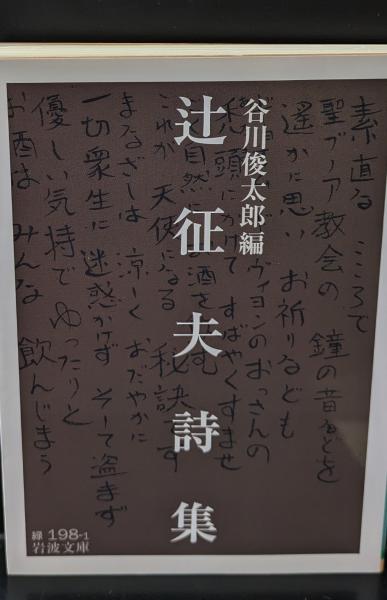 谷川俊太郎編
辻征夫詩集
素直な こころで
聖ブノア教会の 鐘の音などを
遥かに思い お祈りなども
ヴィヨンのおっさんの
念頭にかけて すばやくすませ
自然に お酒を
これが 天使になる 秘訣です
まなざしは 涼しく おだやかに
一切衆生に 迷惑かけず そして盗まず
優しい気持で ゆったりと
お酒は みんな 飲んじまう
緑 198-1
岩波文庫